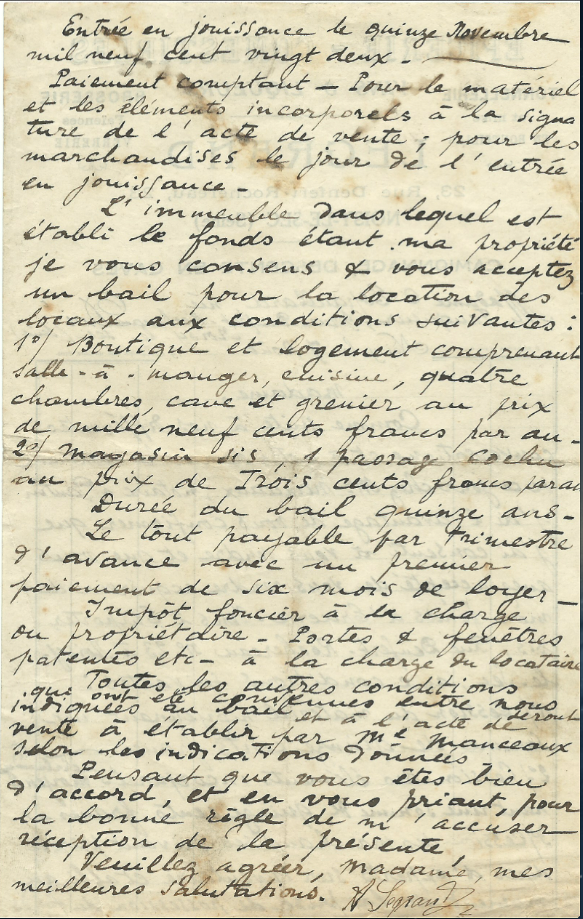 Entrée en jouissance le quinze Novembre
mil neuf cent vingt deux -
Paiement comptant - Pour le matériel
et les éléments incorporels à la signa
ture de l'acte de vente ; pour les
marchandises le jour de l'entrée
en jouissance -
L'immeuble dans lequel est
établi le fonds étant ma propriété
je vous consens & vous acceptez
un bail pour la location des
locaux aux conditions suivantes :
1°/ Boutique et logement comprenant
salle-à-manger, cuisine, quatre
chambres, cave et grenier au prix
de mille neuf cents francs par an -
2°/ magasin sis, 1 passag Cochu
au prix de Trois cents francs par an
Durée du bail quinze ans -
Le tout payable par trimestre
d'avance avec un premier
paiement de six mois de loyer -
Impôt foncier à la charge
du propriétaire - Portes & fenêtres
patentes etc - à la charge du locataire
Toutes les autres conditions
qui ont été convenues entre nous seront
indiquées au bail et à l'acte de
vente à établir par Me Manceaux
selon les indications données
Pensant que vous êtes bien
d'accord, et en vous priant, pour
la bonne règle de m'accuser
réception de la présente,
Veuillez agréer, madame, mes
meilleures salutations. A Legrand